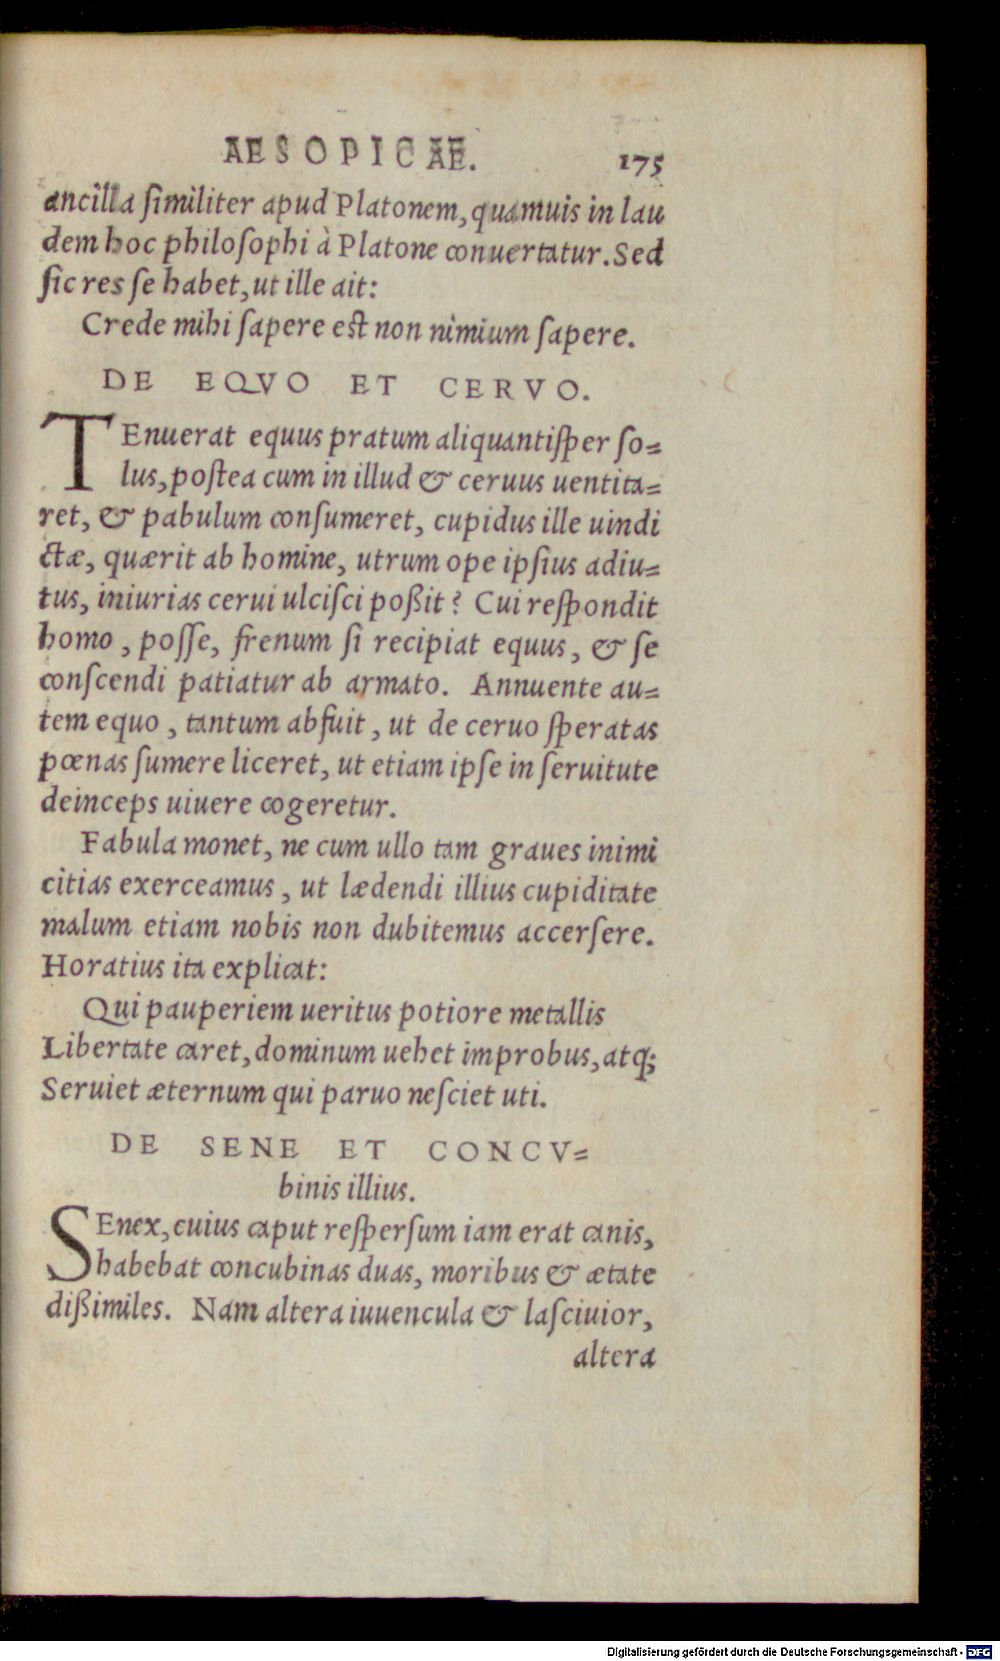 AESOPICAE. 175
ancilla ſimiliter apud Platonem, quamuis in lau
dem hoc philoſophi à Platone conuertatur. Sed
ſic res ſe habet, ut ille ait:
Crede mihi ſapere eſt non nimium ſapere.
DE EQVO ET CERVO.
TEnuerat equus pratum aliquantiſper ſo=
lus, poſtea cum in illud & ceruus uentita=
ret, & pabulum conſumeret, cupidus ille uindi
ctæ, quærit ab homine, utrum ope ipſius adiu=
tus, iniurias cerui ulciſci poßit? Cui reſpondit
homo, poſſe, frenum ſi recipiat equus, & ſe
conſcendi patiatur ab armato. Annuente au=
tem equo, tantum abfuit, ut de ceruo ſperatas
pœnas ſumere liceret, ut etiam ipſe in ſeruitute
deinceps uiuere cogeretur.
Fabula monet, ne cum ullo tam graues inimi
citias exerceamus, ut lædendi illius cupiditate
malum etiam nobis non dubitemus accerſere.
Horatius ita explicat:
Qui pauperiem ueritus potiore metallis
Libertate caret, dominum uehet improbus, atq;
Seruiet æternum qui paruo neſciet uti.
DE SENE ET CONCV=
binis illius.
SEnex, cuius caput reſperſum iam erat canis,
habebat concubinas duas, moribus & ætate
dißimiles. Nam altera iuuencula & laſciuior,
altera
Digitalisierung gefördert durch die Deutsche Forschungsgemeinschaft - DFG